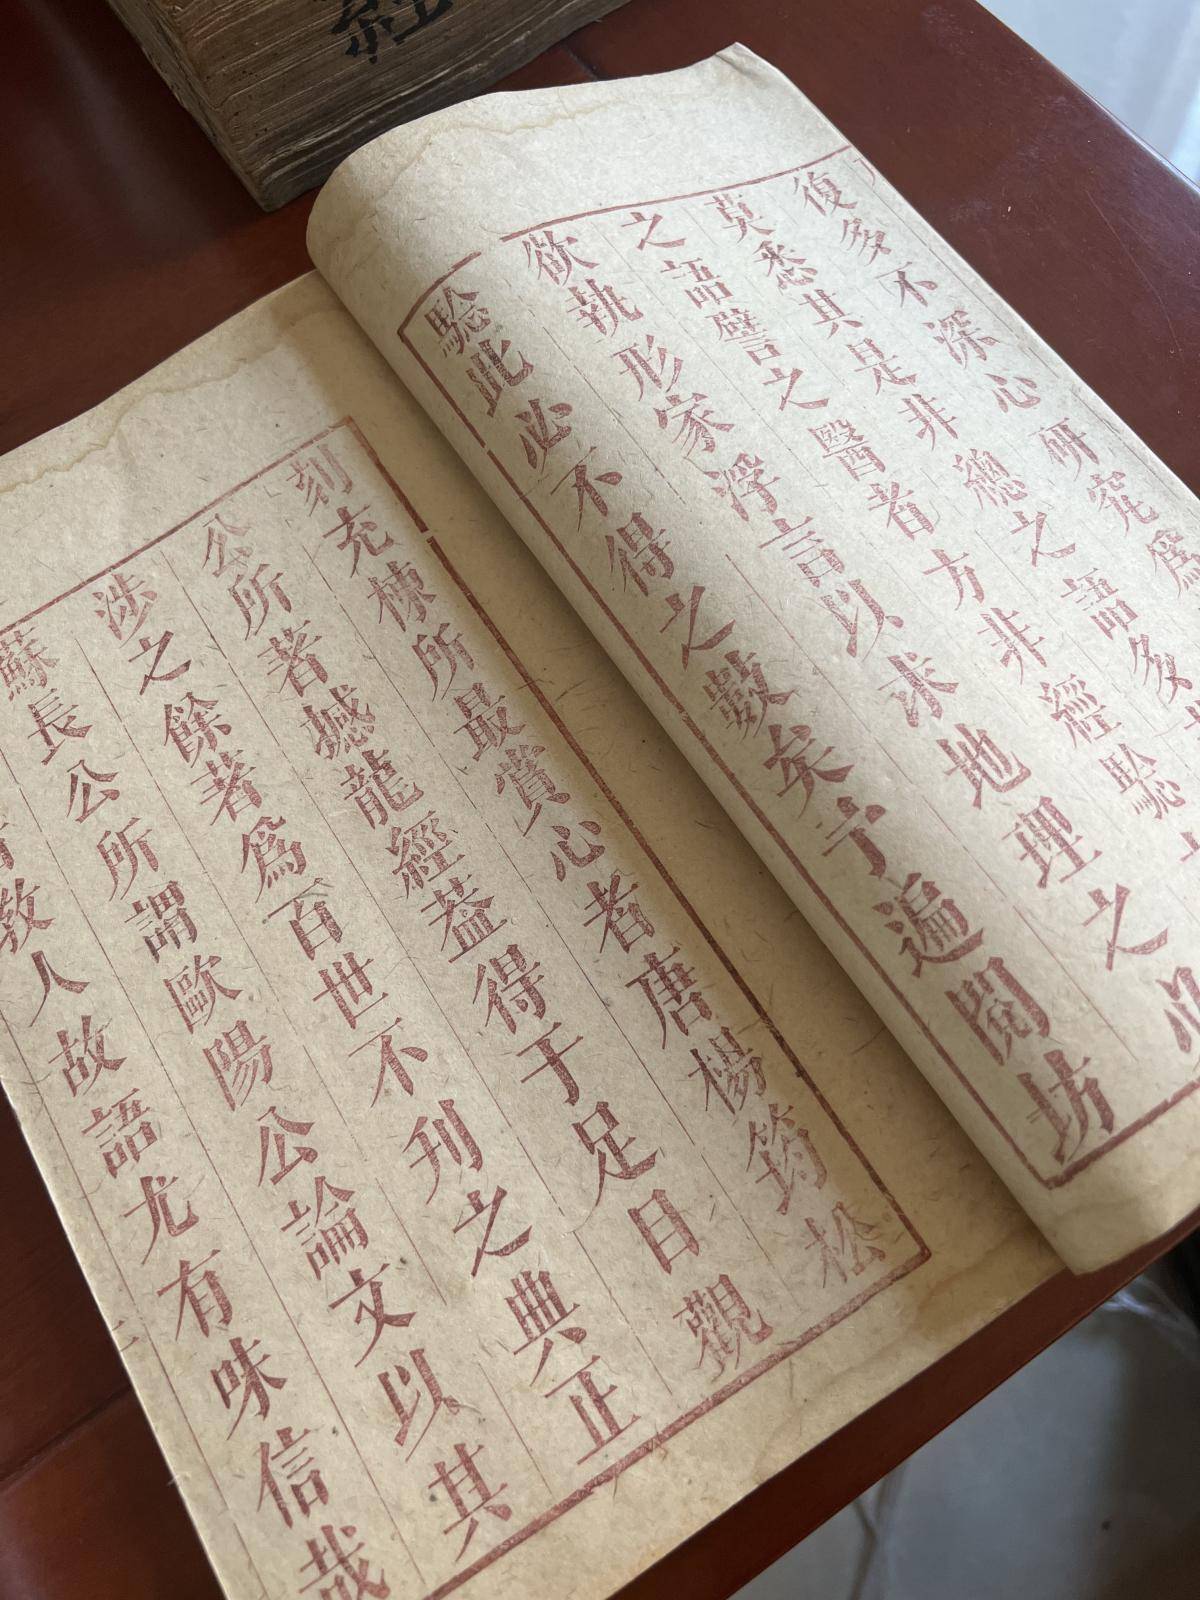 復多不深心研究爲
莫悉其是非總之語多
之語譬之醫者方非經驗
欲執形家浮言以求地理之
驗此必不得之數矣予遍閱坊
刻充棟所最賞心者唐楊筠松
公所著撼龍經葢得于足目觀
涉之餘著爲百世不刊之典正
蘇長公所謂歐陽公論文以其
教人故語尤有味信哉